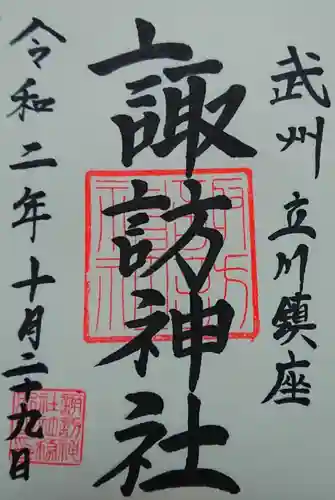 武州 立川鎮座
諏訪神社
令和二年十月二十九日